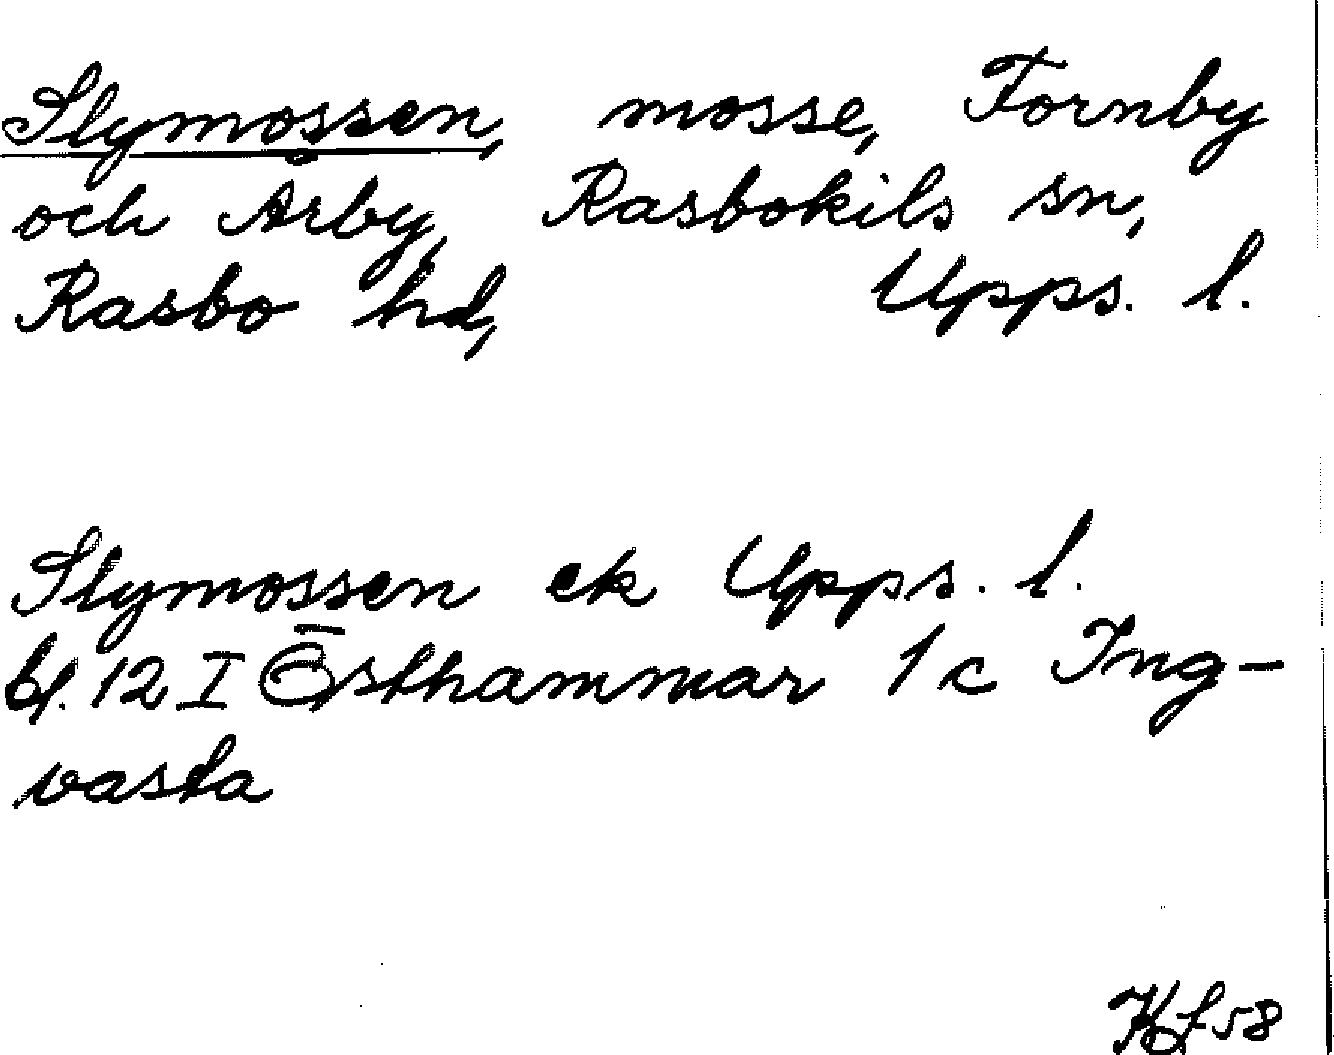 Slymossen, mosse, Fornby
och Årby, Rasbokils sn,
Rasbo hd, Upps. l.
Slymossen ek Upps. l.
bl. 12 I Östhammar 1c Ing-
vasta
KF 58